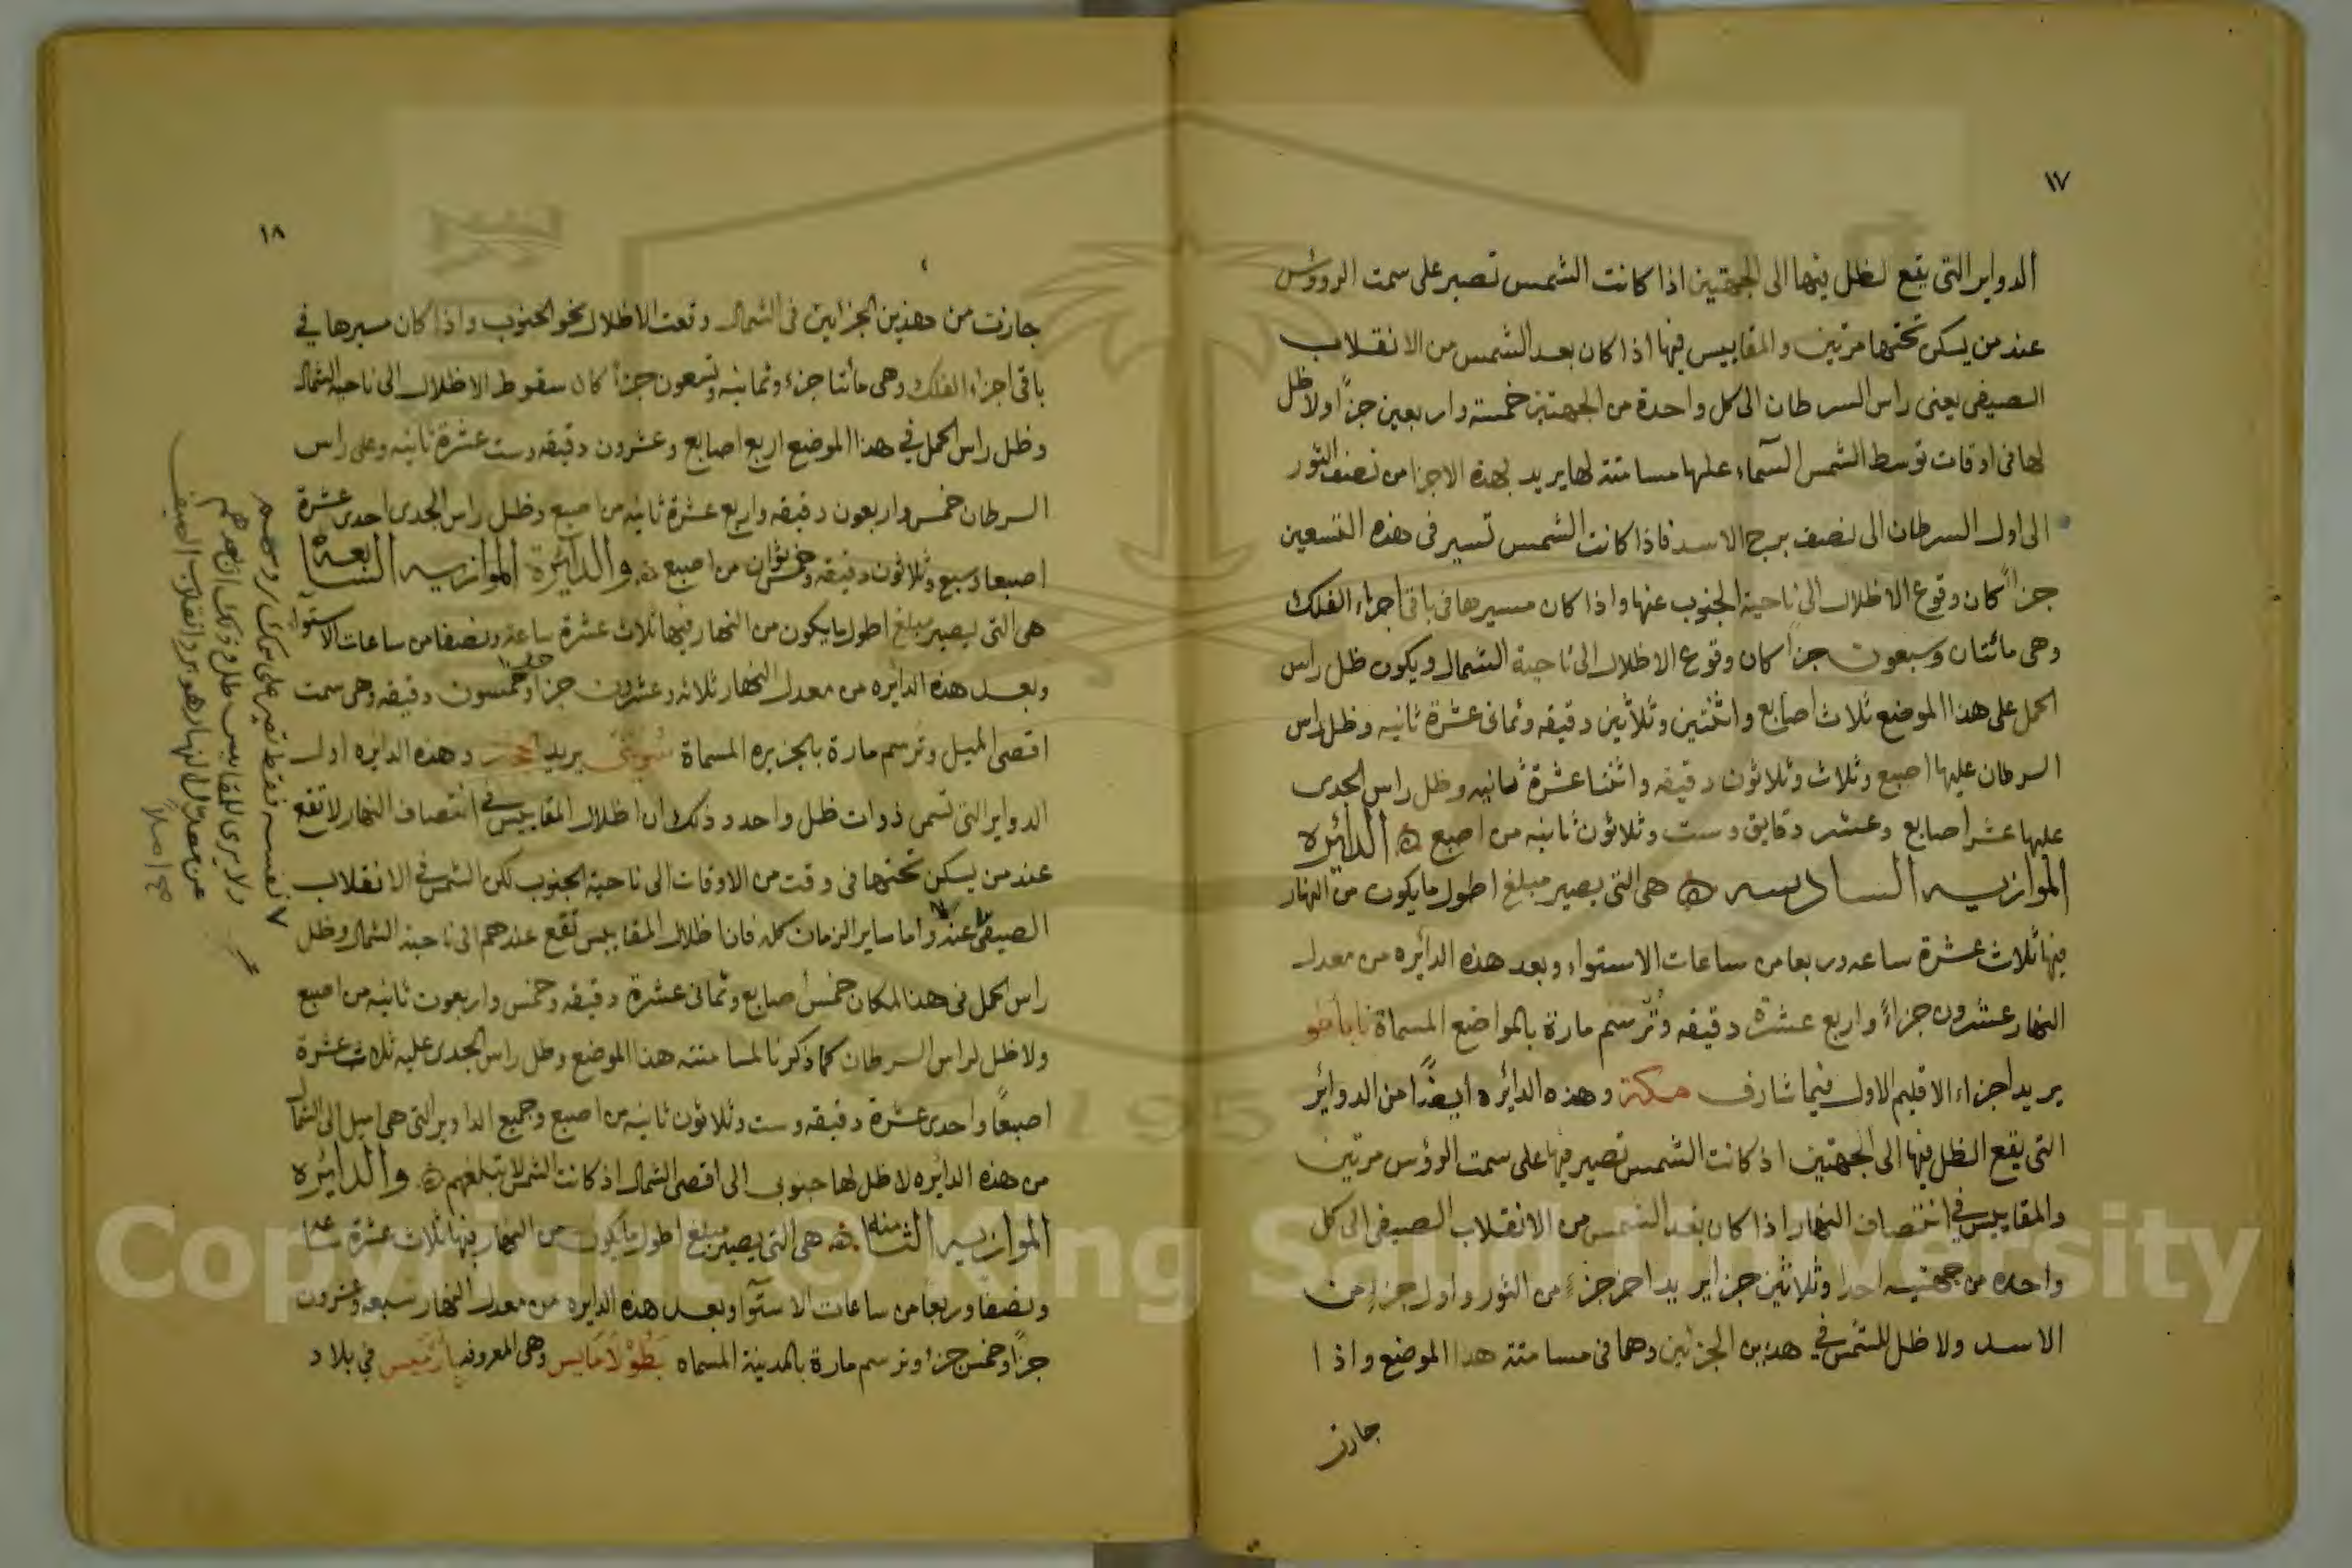 ١٧
الدواير التى يقع لظل فيها الى الجهتين اذا كانت الشمس تصير على سمت الرووس
عند من يسكن تحتها مرتين والمقاييس فيها اذا كان بعد الشمس من الانقلاب
الصيفى يعنى راس السرطان الى كل واحدة من الجهتين خمسته واربعين جزاً ولا ظل
لها فى اوقات توسط الشمس السمآء عليها مسامتة لها يريد بهذه الاجزا من نصف الثور
الى اول السرطان الى نصف برج الاسد فاذا كانت الشمس تسير فى هذه التسعين
جزاً كان وقوع الاظلال الى ناحية الجنوب عنها واذا كان مسيرها فى باقى اجزاء الفلك
وهى مائتان وسبعون جزاً كان وقوع الاظلال الى ناحية الشمال ويكون ظل راس
الحمل على هذا الموضع ثلاث اصابع واثنتين وثلاثين دقيقه وثمانى عشرة ثانيه وظل راس
السرطان عليها اصبع وثلاث وثلاثون دقيقه واثنتا عشرة ثانيه وظل راس الجدى
عليها عشر اصابع وعشر دقايق وست وثلاثون ثانيه من اصبع ه الدائيره
الموازيه السادسه ه هى التى يصير مبلغ اطول ما يكون من النهار
فيها ثلاث عشرة ساعه وربعا من ساعات الاستواء وبعد هذه الدائره من معدل
النهار عشرون جزاءً واربع عشرة دقيقه وتُرسم مارة بالمواضع المسماة ناباطو
يريد اجزاء الاقليم الاول فيما شارف مكة وهذه الدائره ايضًا من الدوائر
التى يقع الظل فيها الى الجهتين اذ كانت الشمس تصير فيها على سمت الرؤس مرتين
والمقاييس فى انتصاف النهار اذا كان بعد الشمس من الانقلاب الصيفى الى كل
واحده من جهتيه احدا وثلاثين جزا يريد اخر جزءٍ من الثور واول جزءٍ من
الاسد ولا ظل للشمس فى هذين الجزئين وهما فى مسامتة هذا الموضع واذا
جازت
١٨
جازت من هذين الجزائين فى الشمال وقعت الاظلال نحو الجنوب واذا كان مسيرها فى
باقى اجزاء الفلك وهى مأتنا جزء وثمانيه وتسعون جزأ كان سقوط الاظلال الى ناحية الشمال
وظل راس الحمل فى هذا الموضع اربع اصابع وعشرون دقيقه وست عشرة ثانيه وعلى راس
السرطان خمس واربعون دقيقه واربع عشرة ثانيه من اصبع وظل راس الجدى احدى عشرة
اصبعا وسبع وثلاثون دقيقه وخمس ثوان من اصبع ه والدائرة الموازيه السابعة
هى التى يصير مبلغ اطول ما يكون من النهار فيها ثلاث عشرة ساعة ونصفا من ساعات الاستواء
وبعد هذه الدائره من معدل النهار ثلاثه وعشرون جزأ وخمسون دقيقه وهى سمت
اقصى الميل وتُرسم مارة بالجزيره المسماة يريد وهذه الدايره اول
الدواير التى تسمى ذوات ظل واحد وذلك ان اظلال المقاييس فى انتصاف النهار لا تقع
عند من يسكن تحتها فى وقت من الاوقات الى ناحية الجنوب لكن الشمس فى الانقلاب
الصيفى عند واما ساير الزمان كله فان اظلال المقاييس تقع عندهم الى ناحية الشمال وظل
راس الحمل فى هذا المكان خمس اصابع وثمانى عشرة دقيقه وخمس واربعون ثانيه من اصبع
ولا ظل لراس السرطان كما ذكرنا لمسامتته هذا الموضع وظل راس الجدى عليه ثلاث عشرة
اصبعًا واحدى عشرة دقيقه وست وثلاثون ثانيه من اصبع وجميع الداوير التى هى اميل الى الشمال
من هذه الدايره لا ظل لها جنوبى الى اقصى الشمال اذ كانت الشمس لا تبلغهم ه والدائيره
الموازيه الثامنه ه هى التى يصير مبلغ اطول ما يكون من النهار فيها ثلاث عشرة ساعه
ونصفا وربعا من ساعات الاستوآ وبعد هذه الدايره من معدل النهار سبعه وعشرون
جزأ وخمس جزء وترسم مارة بالمدينة المسماه بَطُوْلَامَايس وهى المعروفه فى بلاد
نفسه فقط تصير على سمت روسهم
ولا يرى للمقاييس ظل وذلك ان بعدهم
عن معدل النهار هو بعد انقلاب الصيف
صح اصلاً
Copyright © King Saud University
1957